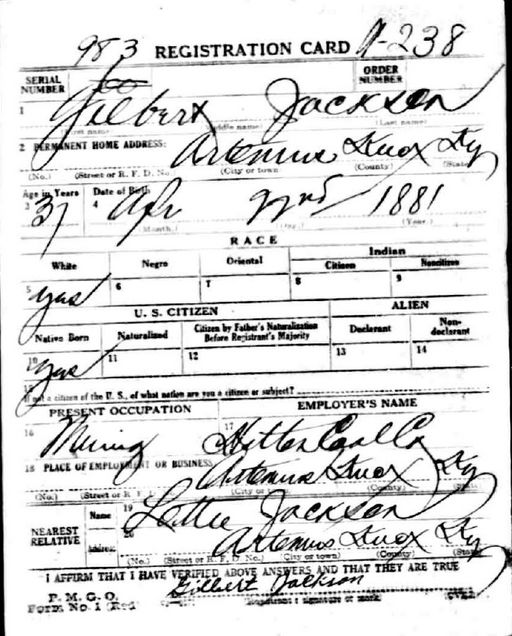 983 REGISTRATION CARD A-238
SERIAL NUMBER ORDER NUMBER
1 Gilbert Jackson
(First name) (Middle name) (Last name)
2 PERMANENT HOME ADDRESS: Artemus Knox Ky
(No.) (Street or R. F. D. No.) (City or town) (County) (State)
Age in Years Date of Birth
3 37 4 Apr 22nd 1881
(Month.) (Day.) (Year.)
RACE
White Negro Oriental Indian
Citizen Noncitizen
5 yas 6 7 8 9
U. S. CITIZEN ALIEN
Native Born Naturalized Citizen by Father's Naturalization Before Registrant's Majority Declarant Non-declarant
10 yas 11 12 13 14
15 If not a citizen of the U. S., of what nation are you a citizen or subject?
PRESENT OCCUPATION EMPLOYER'S NAME
16 Mining 17 Coal Co
18 PLACE OF EMPLOYMENT OR BUSINESS: Artemus Knox Ky
(No.) (Street or R. F. D. No.) (City or town) (County) (State)
NEAREST RELATIVE Name 19 Lottie Jackson
Address 20 Artemus Knox Ky
(No.) (Street or R. F. D. No.) (City or town) (County) (State)
I AFFIRM THAT I HAVE VERIFIED ABOVE ANSWERS AND THAT THEY ARE TRUE
P. M. G. O. Gilbert Jackson
Form No. 1 (Red) (Registrant's signature or mark)